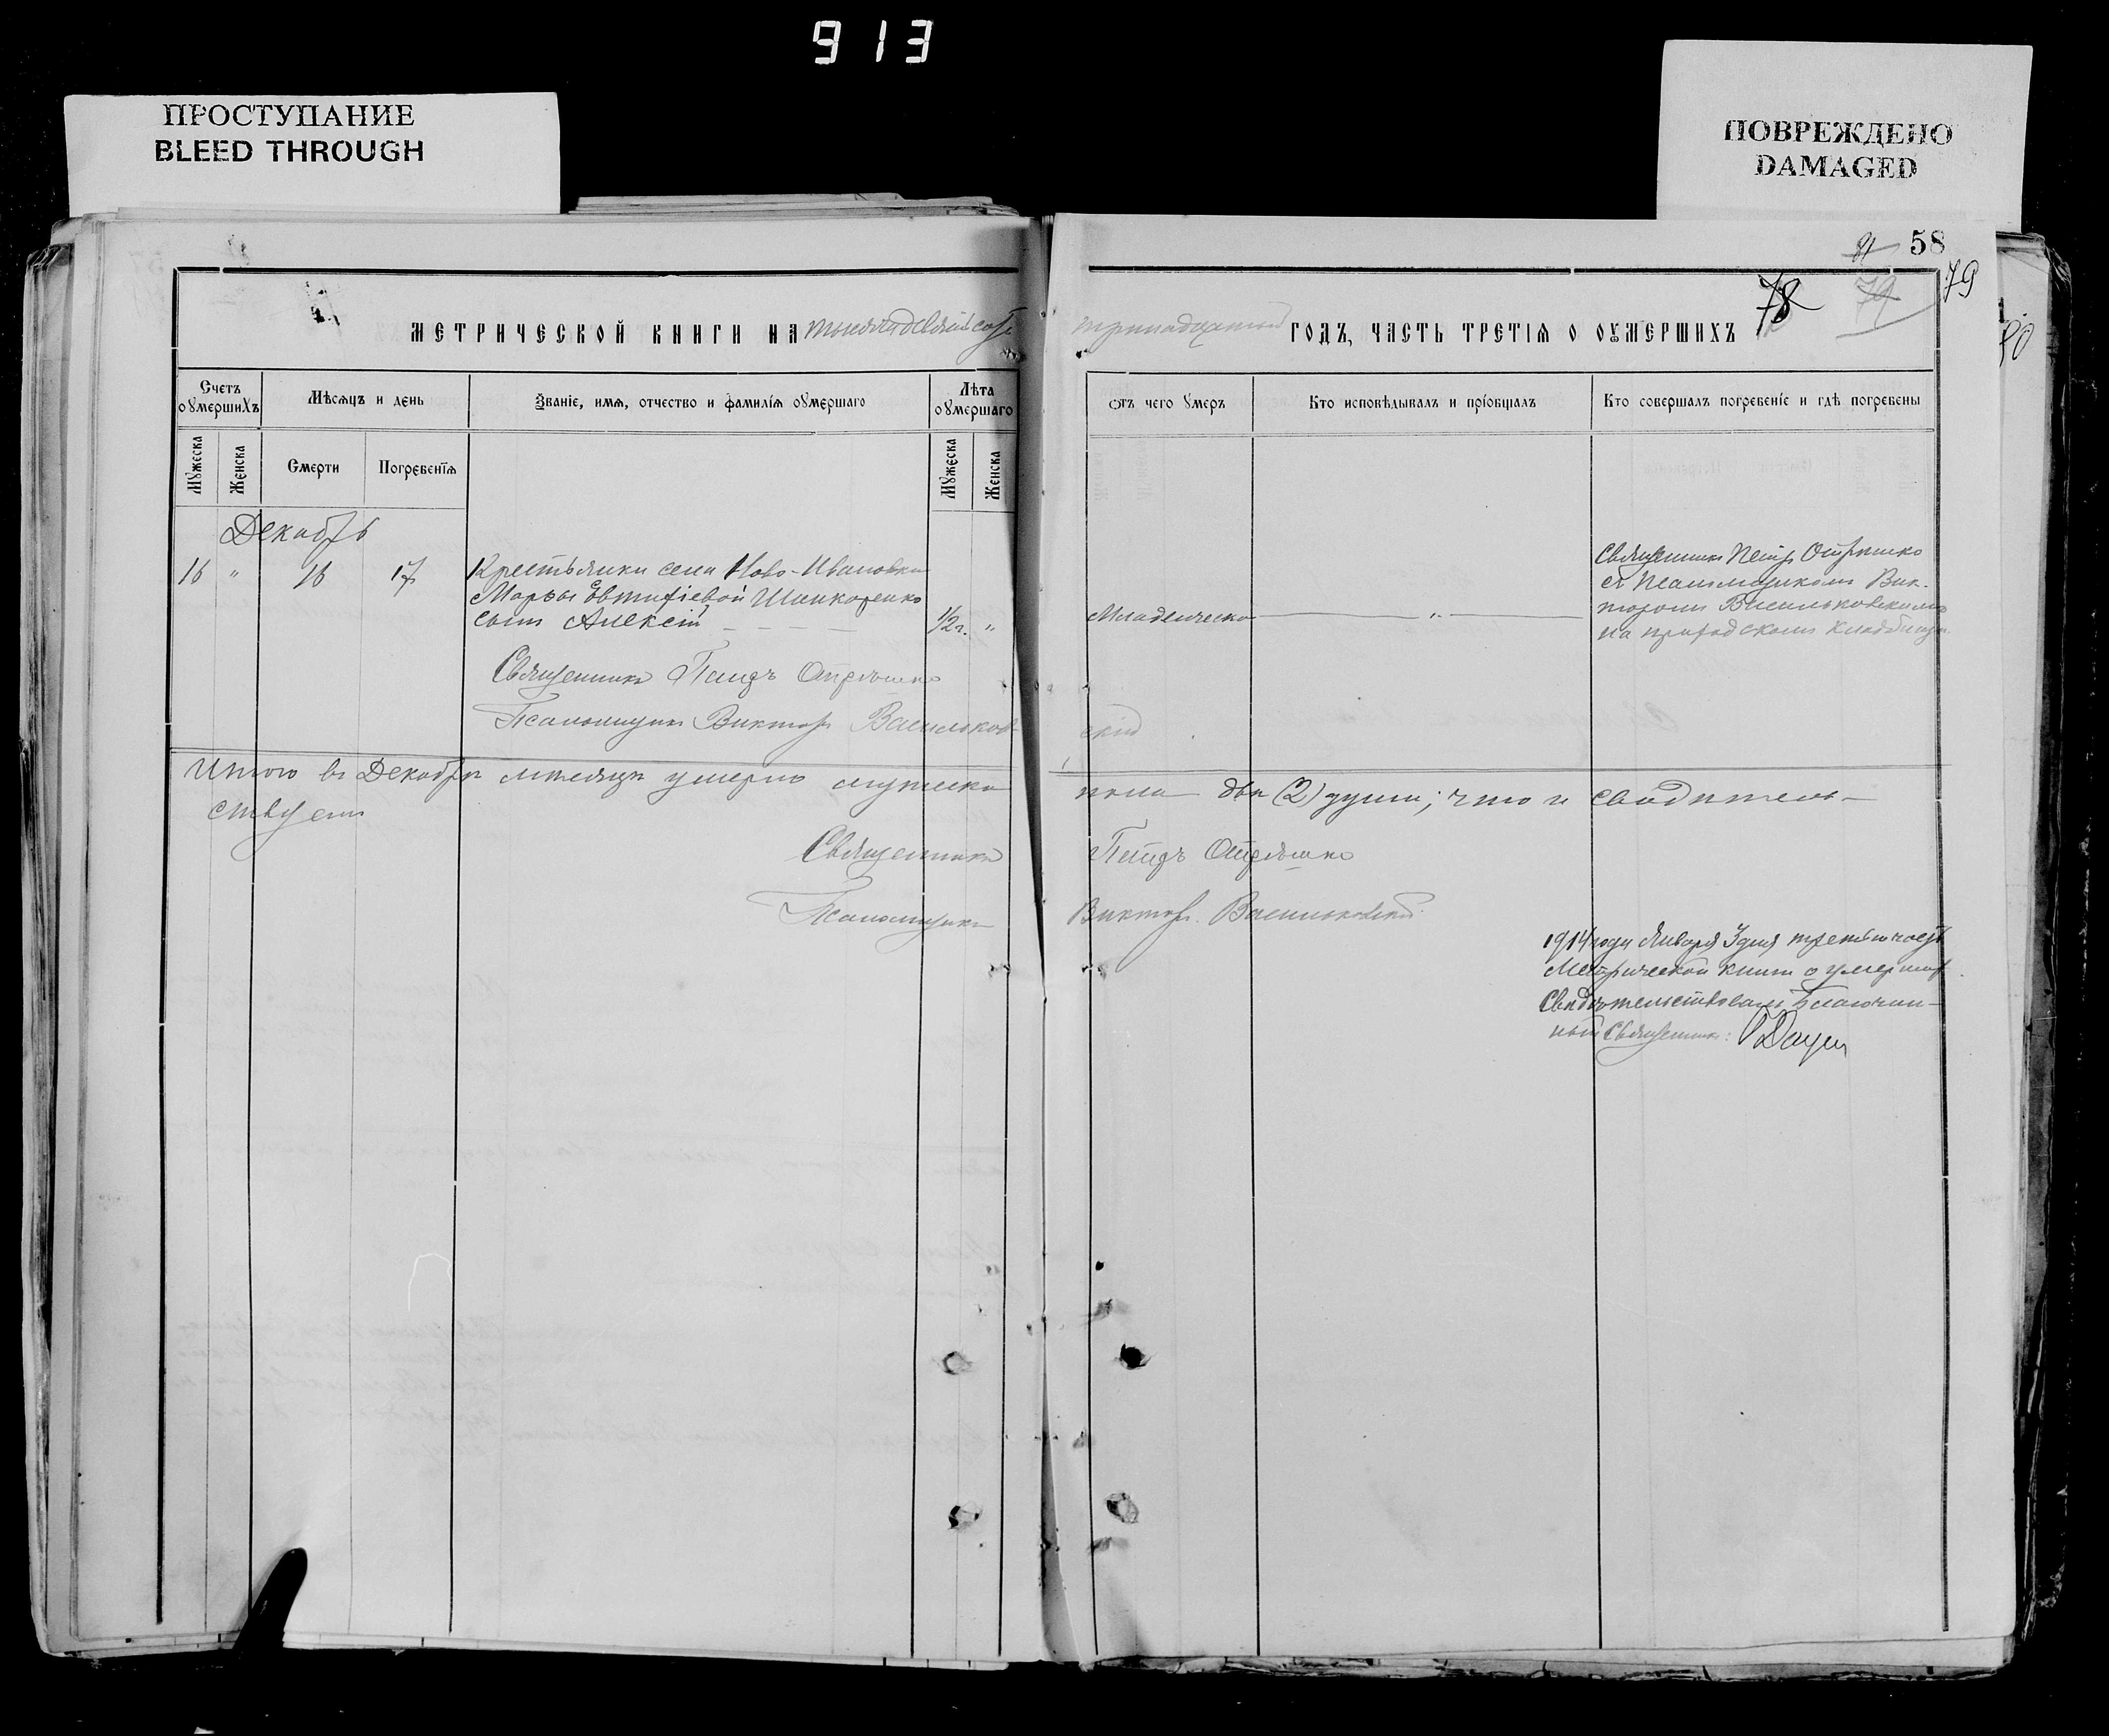 913
ПРОСТУПАНИЕ
BLEED THROUGH
ПОВРЕЖДЕНО
DAMAGED
58
79
78
79
МЕТРИЧЕСКОЙ КНИГИ НА тысяча девятьсот тринадцатый ГОДЪ, ЧАСТЬ ТРЕТІЯ О ОУМЕРШИХЪ
Счетъ оумершихъ
Мѣсяцъ и день
Званіе, имя, отчество и фамилія оумершаго
Лѣта оумершаго
Отъ чего умеръ
Кто исповѣдывалъ и пріобщалъ
Кто совершалъ погребеніе и гдѣ погребены
Мужеска
Женска
Смерти
Погребенія
Мужеска
Женска
Декабрь
16 " 16 17
Крестьянки села Ново-Ивановки
Марѳы Евтихіевой
сынъ Алексій
1/2 г. "
Младенческо "
Священникъ Петръ
съ псаломщикомъ Вик-
торомъ Васильковскимъ
на приходскомъ кладбищѣ
Священникъ Петръ
Псаломщикъ Викторъ Васильков-
скій
Итого въ Декабрѣ мѣсяцѣ умерло мужска пола двѣ (2) души; что и свидѣтель-
ствуемъ
Священникъ Петръ
Псаломщикъ Викторъ Васильковскій
1914 года Января 3 дня третью часть
Метрической книги о умершихъ
Свидѣтельствовалъ Благочин-
ный Священникъ: